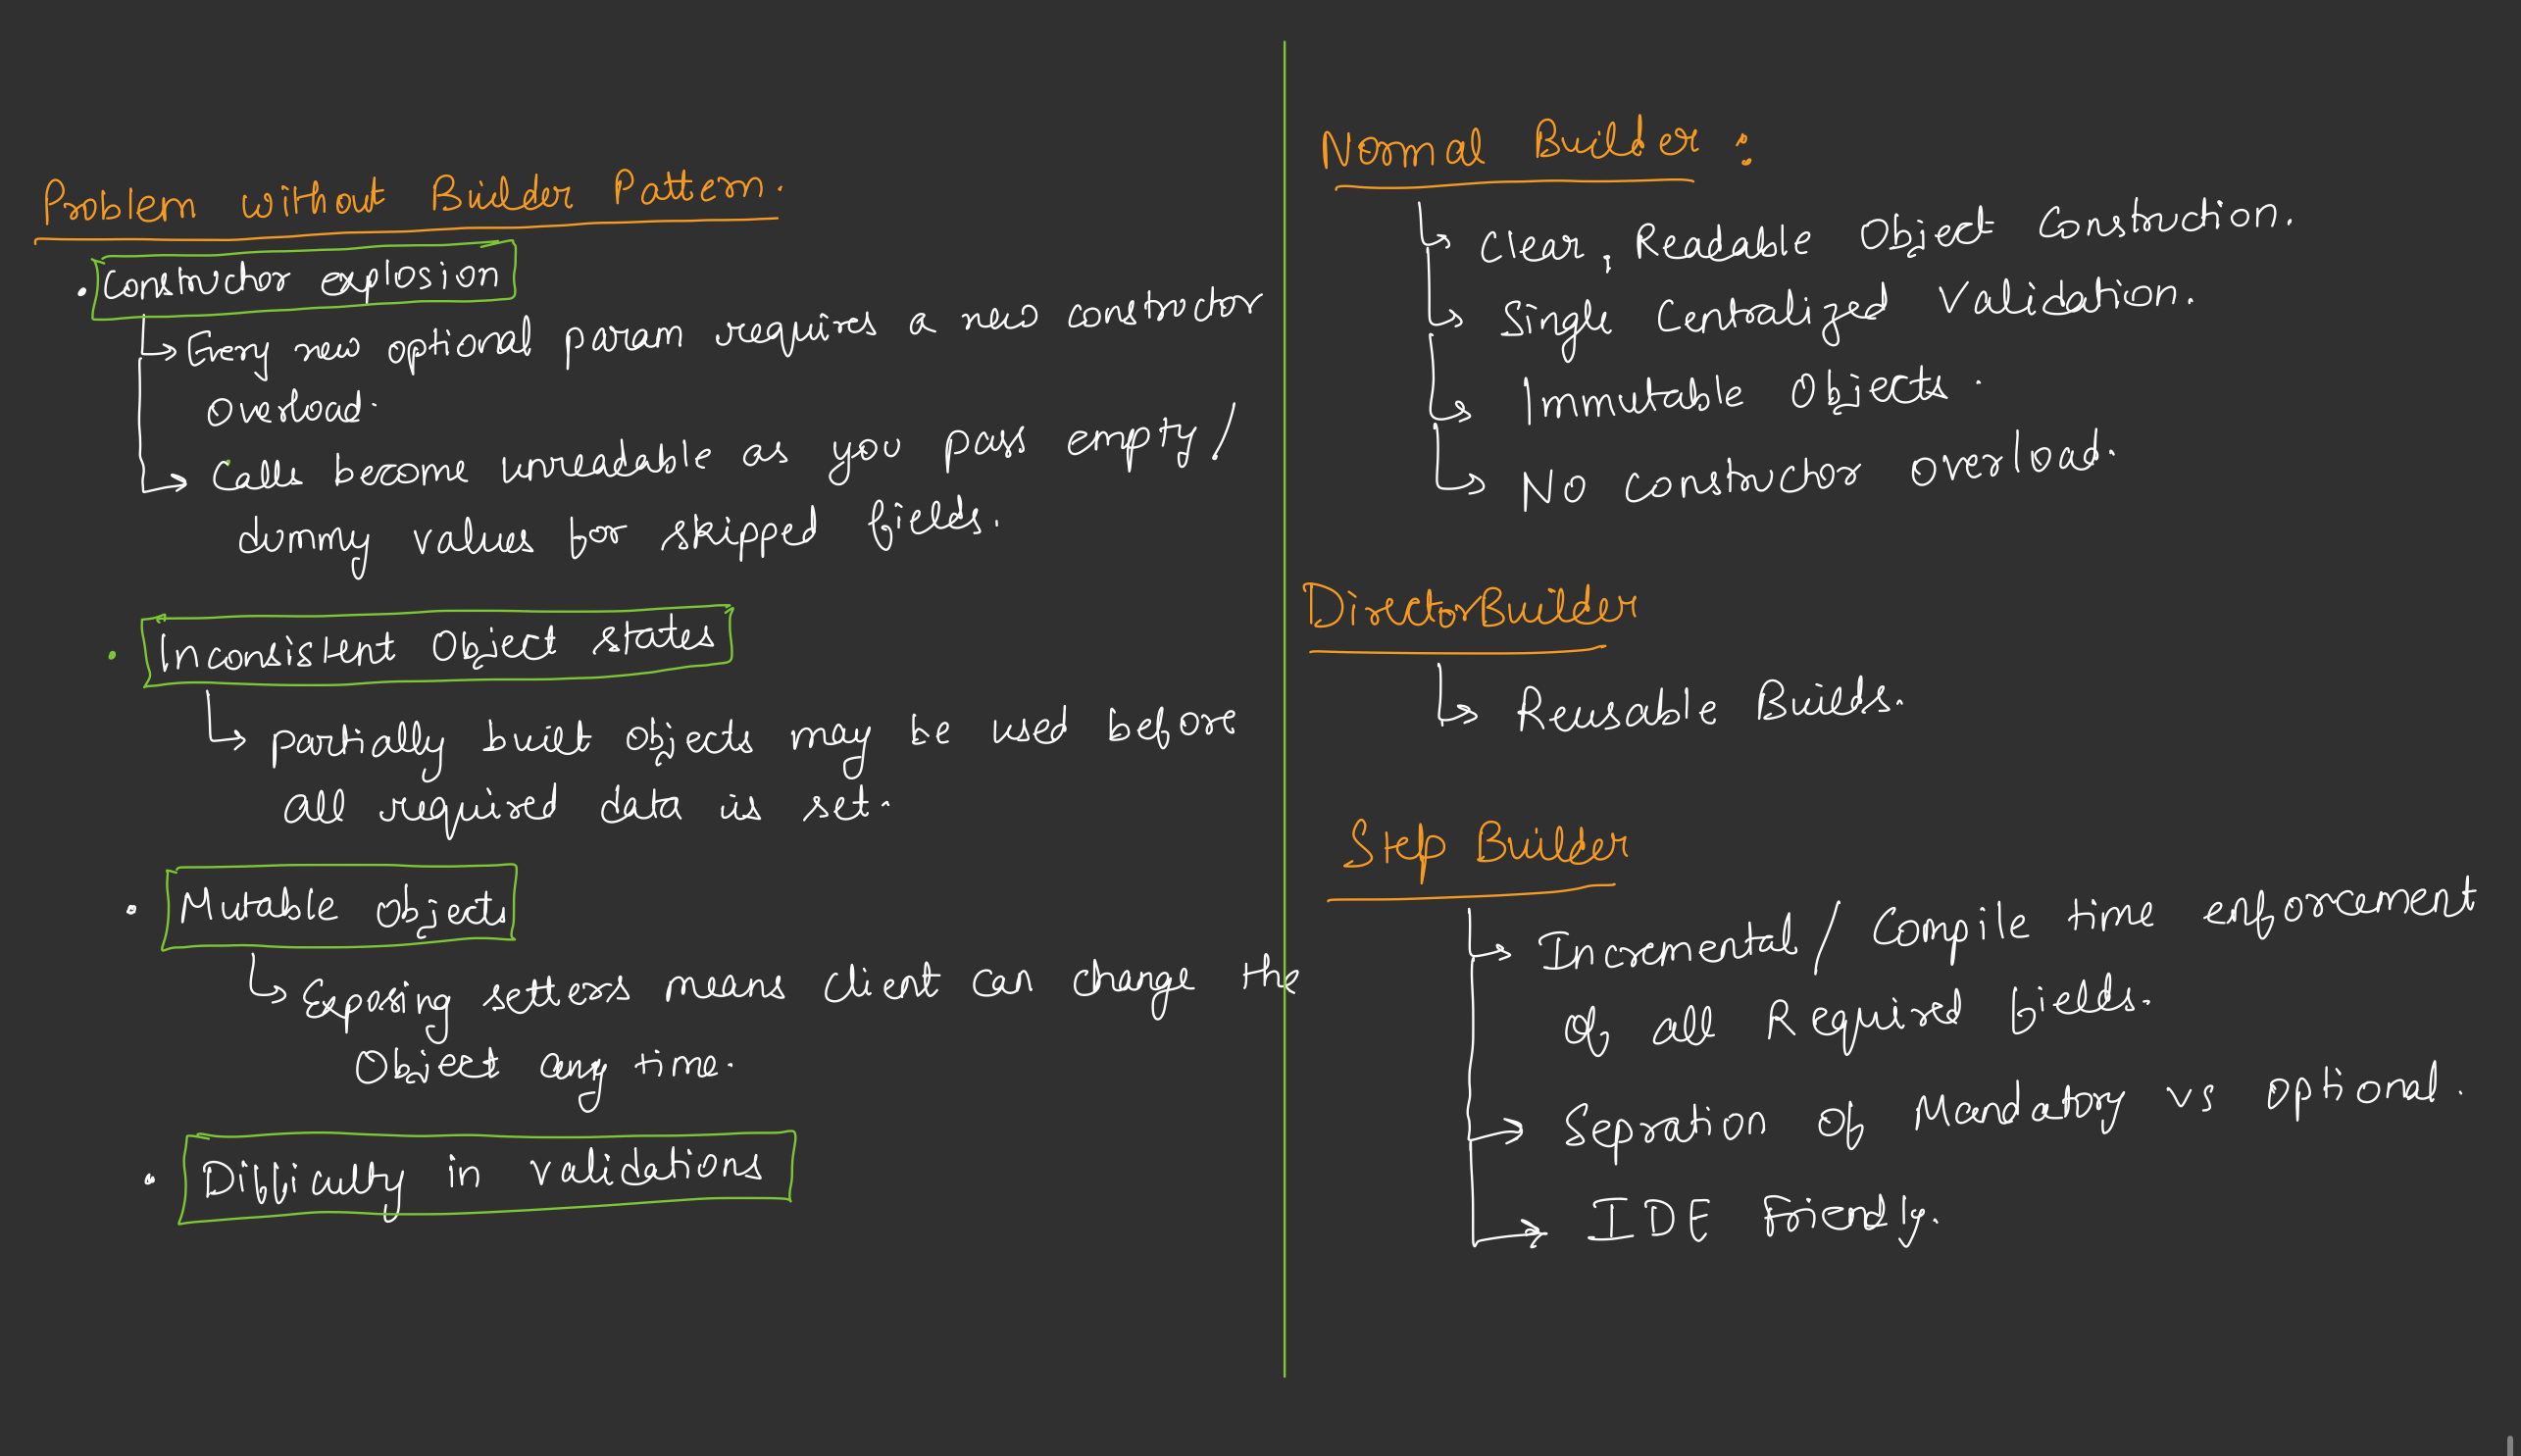 Problem without Builder Pattern.
• Constructor explosion
↳ Every new optional param requires a new constructor
overload.
↳ Calls become unreadable as you pass empty/
dummy values for skipped fields.
• Inconsistent Object states
↳ partially built objects may be used before
all required data is set.
• Mutable objects
↳ Exposing setters means client can change the
Object any time.
• Difficulty in validations
Normal Builder :
↳ Clear, Readable Object Construction.
↳ Single Centralized Validation.
↳ Immutable Objects.
↳ No constructor overload.
DirectorBuilder
↳ Reusable Builds.
Step Builder
↳ Incremental / Compile time enforcement
of all Required fields.
→ Sepration of Mandatory vs optional.
→ IDE friendly.